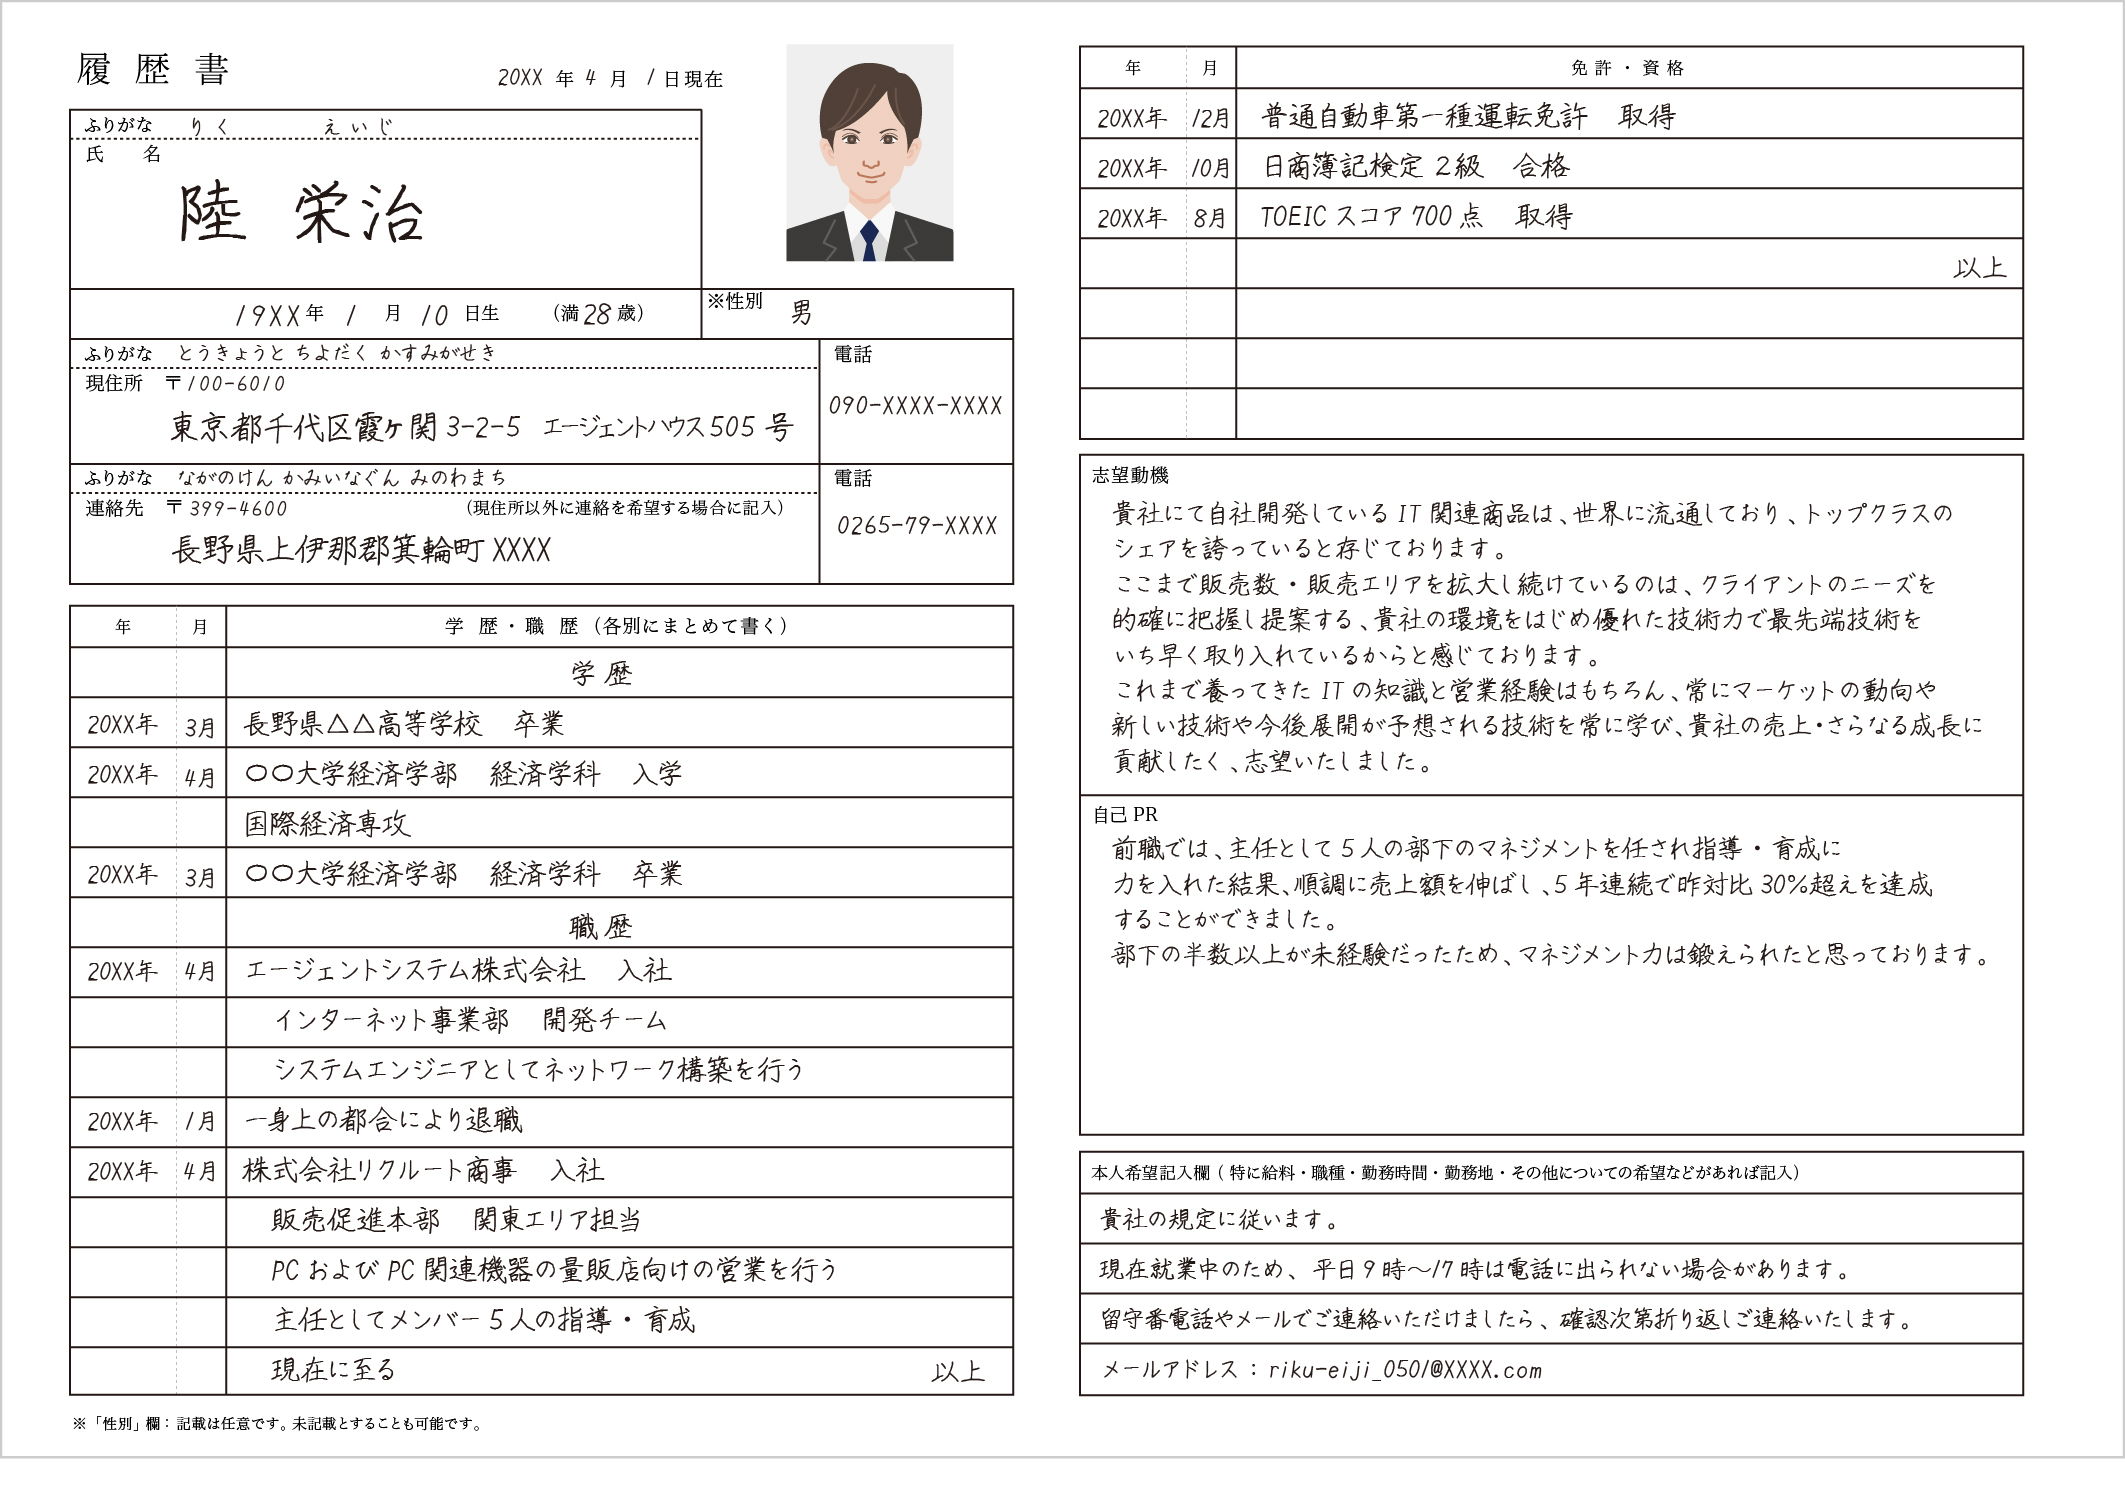 履歴書
20XX 年 4 月 1 日現在
ふりがな りく えいじ
氏 名
陸 栄治
19XX年 1 月 10 日生 (満28歳)
※性別 男
ふりがな とうきょうと ちよだく かすみがせき
電話
現住所 〒100-6010
090-XXXX-XXXX
東京都千代区霞ヶ関 3-2-5 エージェントハウス505 号
ふりがな ながのけん かみいなぐん みのわまち
電話
連絡先 〒399-4600 (現住所以外に連絡を希望する場合に記入)
0265-79-XXXX
長野県上伊那郡箕輪町 XXXX
年 月 学 歴・職 歴(各別にまとめて書く)
学歴
20XX年 3月 長野県△△高等学校 卒業
20XX年 4月 〇〇大学経済学部 経済学科 入学
国際経済専攻
20XX年 3月 〇〇大学経済学部 経済学科 卒業
職歴
20XX年 4月 エージェントシステム株式会社 入社
インターネット事業部 開発チーム
システムエンジニアとしてネットワーク構築を行う
20XX年 1月 一身上の都合により退職
20XX年 4月 株式会社リクルート商事 入社
販売促進本部 関東エリア担当
PCおよびPC関連機器の量販店向けの営業を行う
主任としてメンバー5人の指導・育成
現在に至る 以上
※「性別」欄:記載は任意です。未記載とすることも可能です。
年 月 免許・資格
20XX年 12月 普通自動車第一種運転免許 取得
20XX年 10月 日商簿記検定 2級 合格
20XX年 8月 TOEIC スコア 700 点 取得
以上
志望動機
貴社にて自社開発している IT 関連商品は、世界に流通しており、トップクラスの
シェアを誇っていると存じております。
ここまで販売数・販売エリアを拡大し続けているのは、クライアントのニーズを
的確に把握し提案する、貴社の環境をはじめ優れた技術力で最先端技術を
いち早く取り入れているからと感じております。
これまで養ってきた IT の知識と営業経験はもちろん、常にマーケットの動向や
新しい技術や今後展開が予想される技術を常に学び、貴社の売上・さらなる成長に
貢献したく、志望いたしました。
自己 PR
前職では、主任として 5 人の部下のマネジメントを任され指導・育成に
力を入れた結果、順調に売上額を伸ばし、5 年連続で昨対比 30%超えを達成
することができました。
部下の半数以上が未経験だったため、マネジメント力は鍛えられたと思っております。
本人希望記入欄(特に給料・職種・勤務時間・勤務地・その他についての希望などがあれば記入)
貴社の規定に従います。
現在就業中のため、平日 9 時〜17 時は電話に出られない場合があります。
留守番電話やメールでご連絡いただけましたら、確認次第折り返しご連絡いたします。
メールアドレス:riku-eiji_0501@XXXX.com